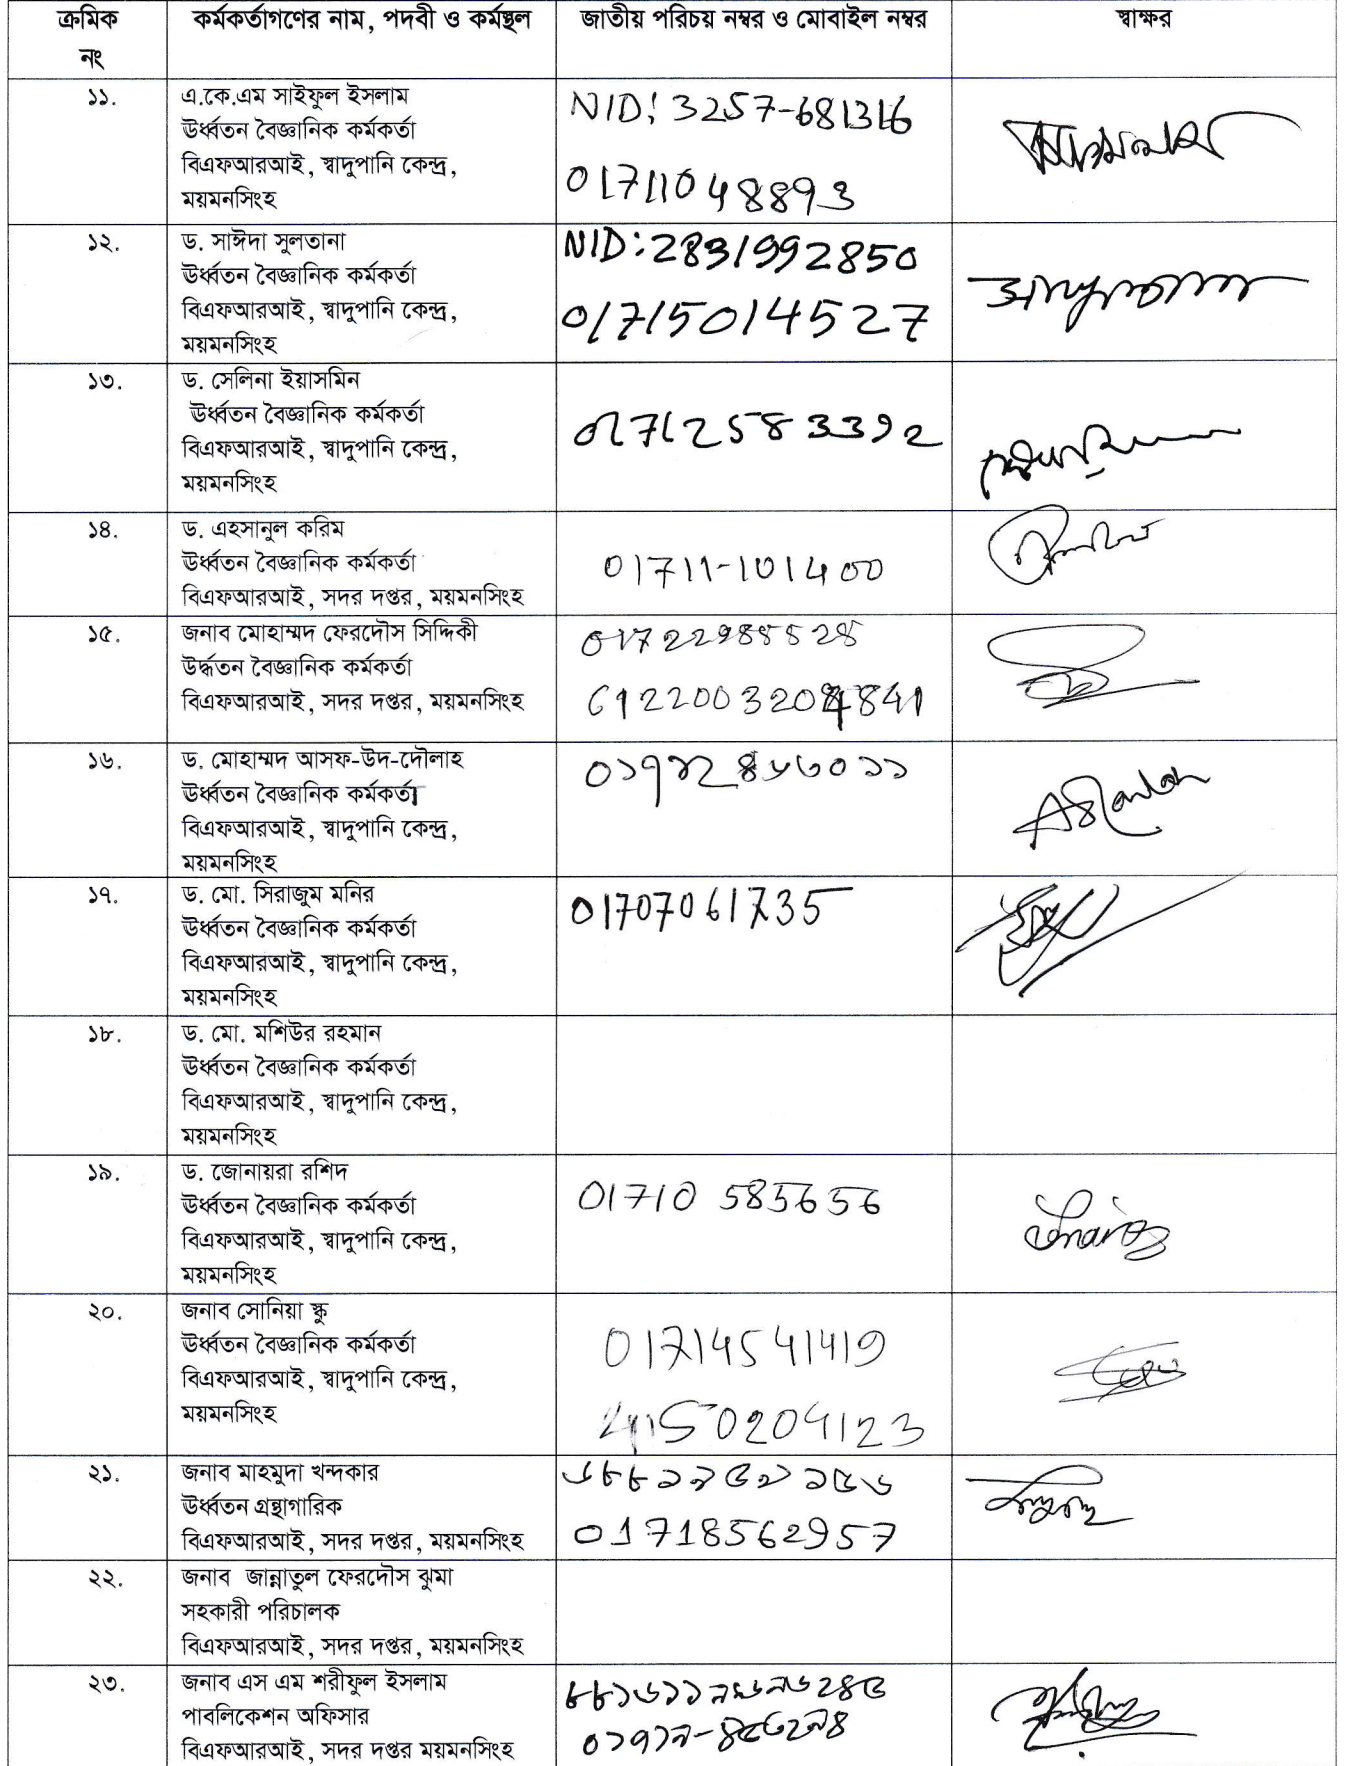 ক্রমিক নং কর্মকর্তাগণের নাম, পদবী ও কর্মস্থল জাতীয় পরিচয় নম্বর ও মোবাইল নম্বর স্বাক্ষর
১১. এ.কে.এম সাইফুল ইসলাম
ঊর্ধ্বতন বৈজ্ঞানিক কর্মকর্তা
বিএফআরআই, স্বাদুপানি কেন্দ্র,
ময়মনসিংহ
NID: 3257-681316
01711048893
১২. ড. সাঈদা সুলতানা
ঊর্ধ্বতন বৈজ্ঞানিক কর্মকর্তা
বিএফআরআই, স্বাদুপানি কেন্দ্র,
ময়মনসিংহ
NID:2831992850
01715014527
১৩. ড. সেলিনা ইয়াসমিন
ঊর্ধ্বতন বৈজ্ঞানিক কর্মকর্তা
বিএফআরআই, স্বাদুপানি কেন্দ্র,
ময়মনসিংহ
01712583392
১৪. ড. এহসানুল করিম
ঊর্ধ্বতন বৈজ্ঞানিক কর্মকর্তা
বিএফআরআই, সদর দপ্তর, ময়মনসিংহ
01711-101400
১৫. জনাব মোহাম্মদ ফেরদৌস সিদ্দিকী
উর্দ্ধতন বৈজ্ঞানিক কর্মকর্তা
বিএফআরআই, সদর দপ্তর, ময়মনসিংহ
১৬. ড. মোহাম্মদ আসফ-উদ-দৌলাহ
ঊর্ধ্বতন বৈজ্ঞানিক কর্মকর্তা
বিএফআরআই, স্বাদুপানি কেন্দ্র,
ময়মনসিংহ
১৭. ড. মো. সিরাজুম মনির
ঊর্ধ্বতন বৈজ্ঞানিক কর্মকর্তা
বিএফআরআই, স্বাদুপানি কেন্দ্র,
ময়মনসিংহ
01707061735
১৮. ড. মো. মশিউর রহমান
ঊর্ধ্বতন বৈজ্ঞানিক কর্মকর্তা
বিএফআরআই, স্বাদুপানি কেন্দ্র,
ময়মনসিংহ
১৯. ড. জোনায়রা রশিদ
ঊর্ধ্বতন বৈজ্ঞানিক কর্মকর্তা
বিএফআরআই, স্বাদুপানি কেন্দ্র,
ময়মনসিংহ
01710 585656
২০. জনাব সোনিয়া স্কু
ঊর্ধ্বতন বৈজ্ঞানিক কর্মকর্তা
বিএফআরআই, স্বাদুপানি কেন্দ্র,
ময়মনসিংহ
01714541419
4150204123
২১. জনাব মাহমুদা খন্দকার
ঊর্ধ্বতন গ্রন্থাগারিক
বিএফআরআই, সদর দপ্তর, ময়মনসিংহ
01718562957
২২. জনাব জান্নাতুল ফেরদৌস ঝুমা
সহকারী পরিচালক
বিএফআরআই, সদর দপ্তর, ময়মনসিংহ
২৩. জনাব এস এম শরীফুল ইসলাম
পাবলিকেশন অফিসার
বিএফআরআই, সদর দপ্তর ময়মনসিংহ